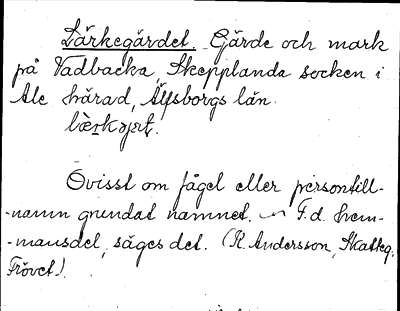 Lärkegärdet. Gärde och mark
på Vadbacka, Skepplanda socken i
Ale härad, Älvsborgs län.
Ovisst om fågel eller persontill-
-namn grundat namnet. ~ F.d. hem-
-mansdel, säges det. (K. Andersson, Skatteg.
Frövet).